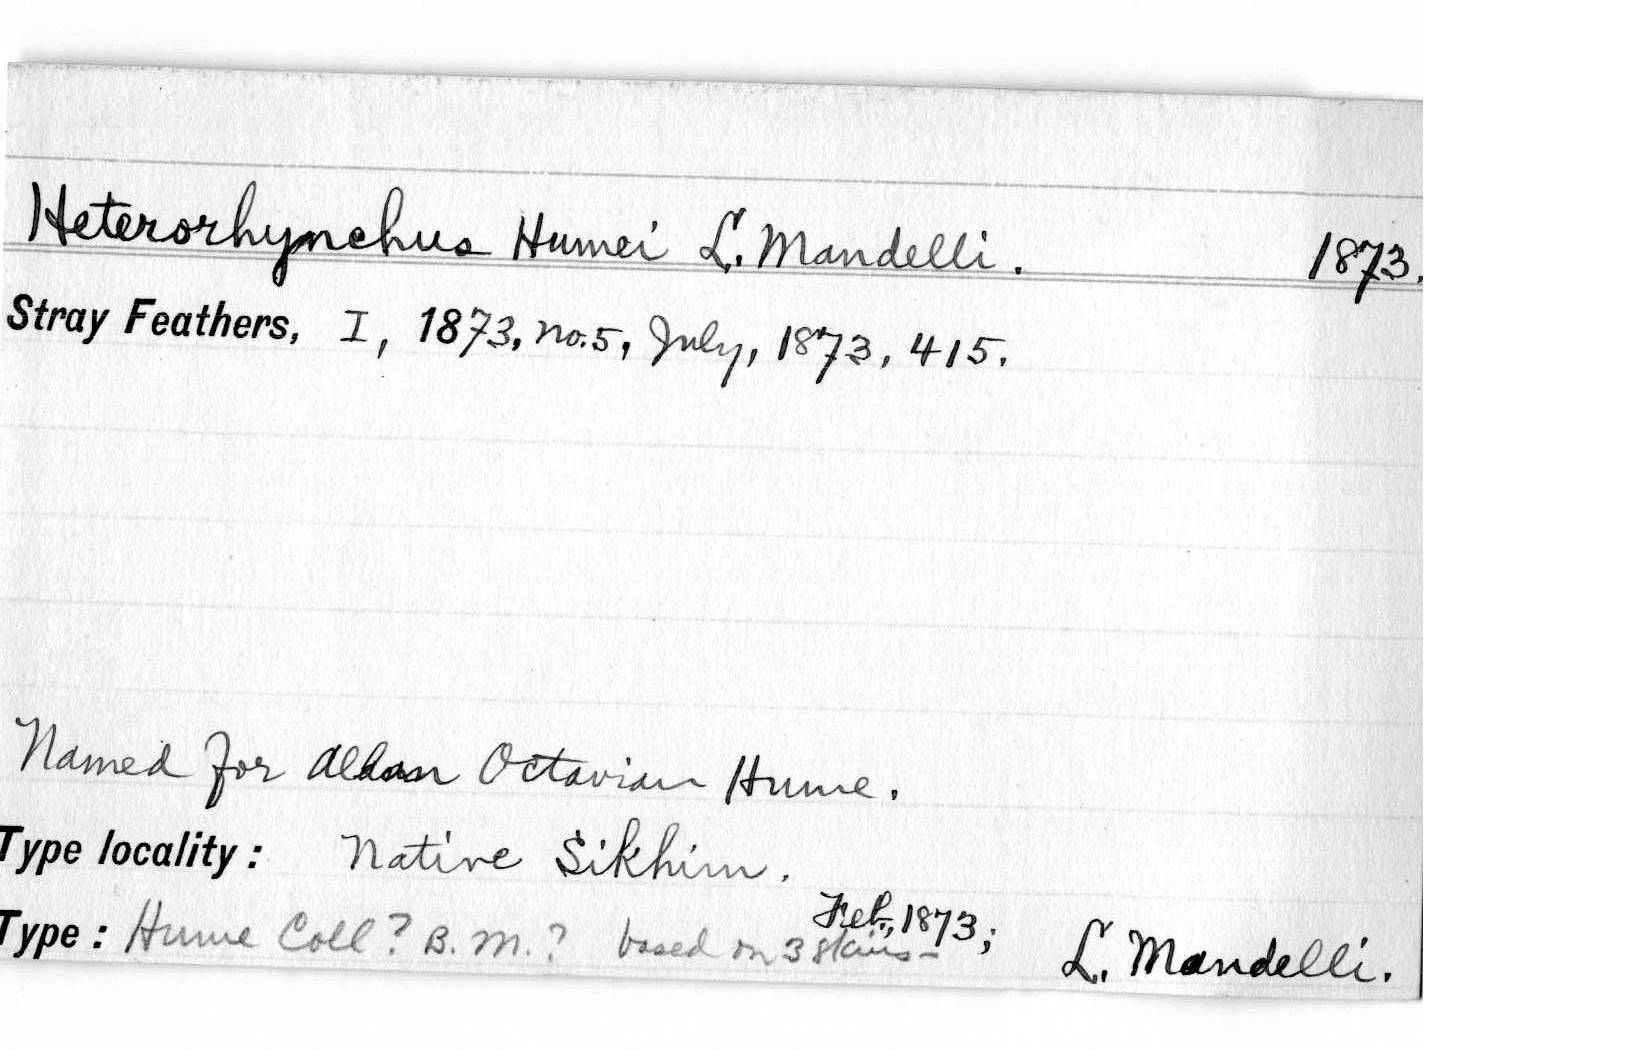 Heterorhynchus Humei L. Mandelli. 1873.
Stray Feathers, I, 1873, no. 5, July, 1873, 415.
Named for Allan Octavian Hume.
Type locality: Native Sikhim.
Feb., 1873;
Type: Hume Coll? B.M.? based on 3 skins- L. Mandelli.